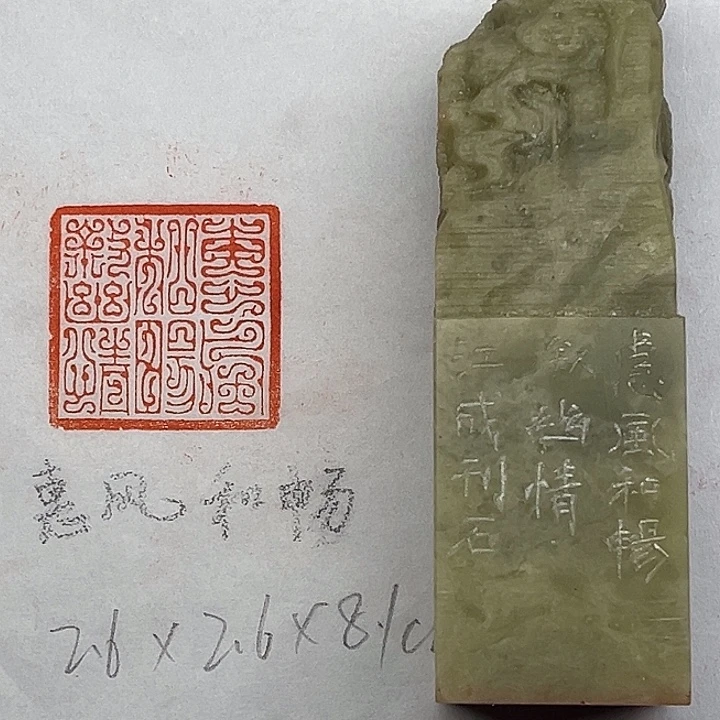 惠風
和暢
惠风和畅
2.6×2.6×8.1c
惠風和暢
幽情
江成刊石